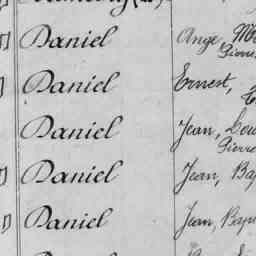 Daniel Ange
Pierre
Daniel Ernest,
Daniel Jean, Lou
Pierre
Daniel Jean, Bap
Daniel Jean, Bap